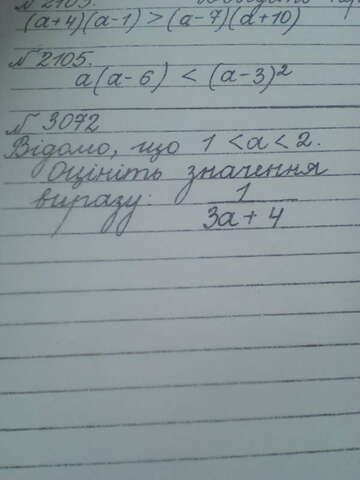 (a+4)(a-1) > (a-7)(a+10)
№2105.
a(a-6) < (a-3)²
№ 3072
Відомо, що 1 < a < 2.
Оцініть значення
виразу: 1/(3a+4)